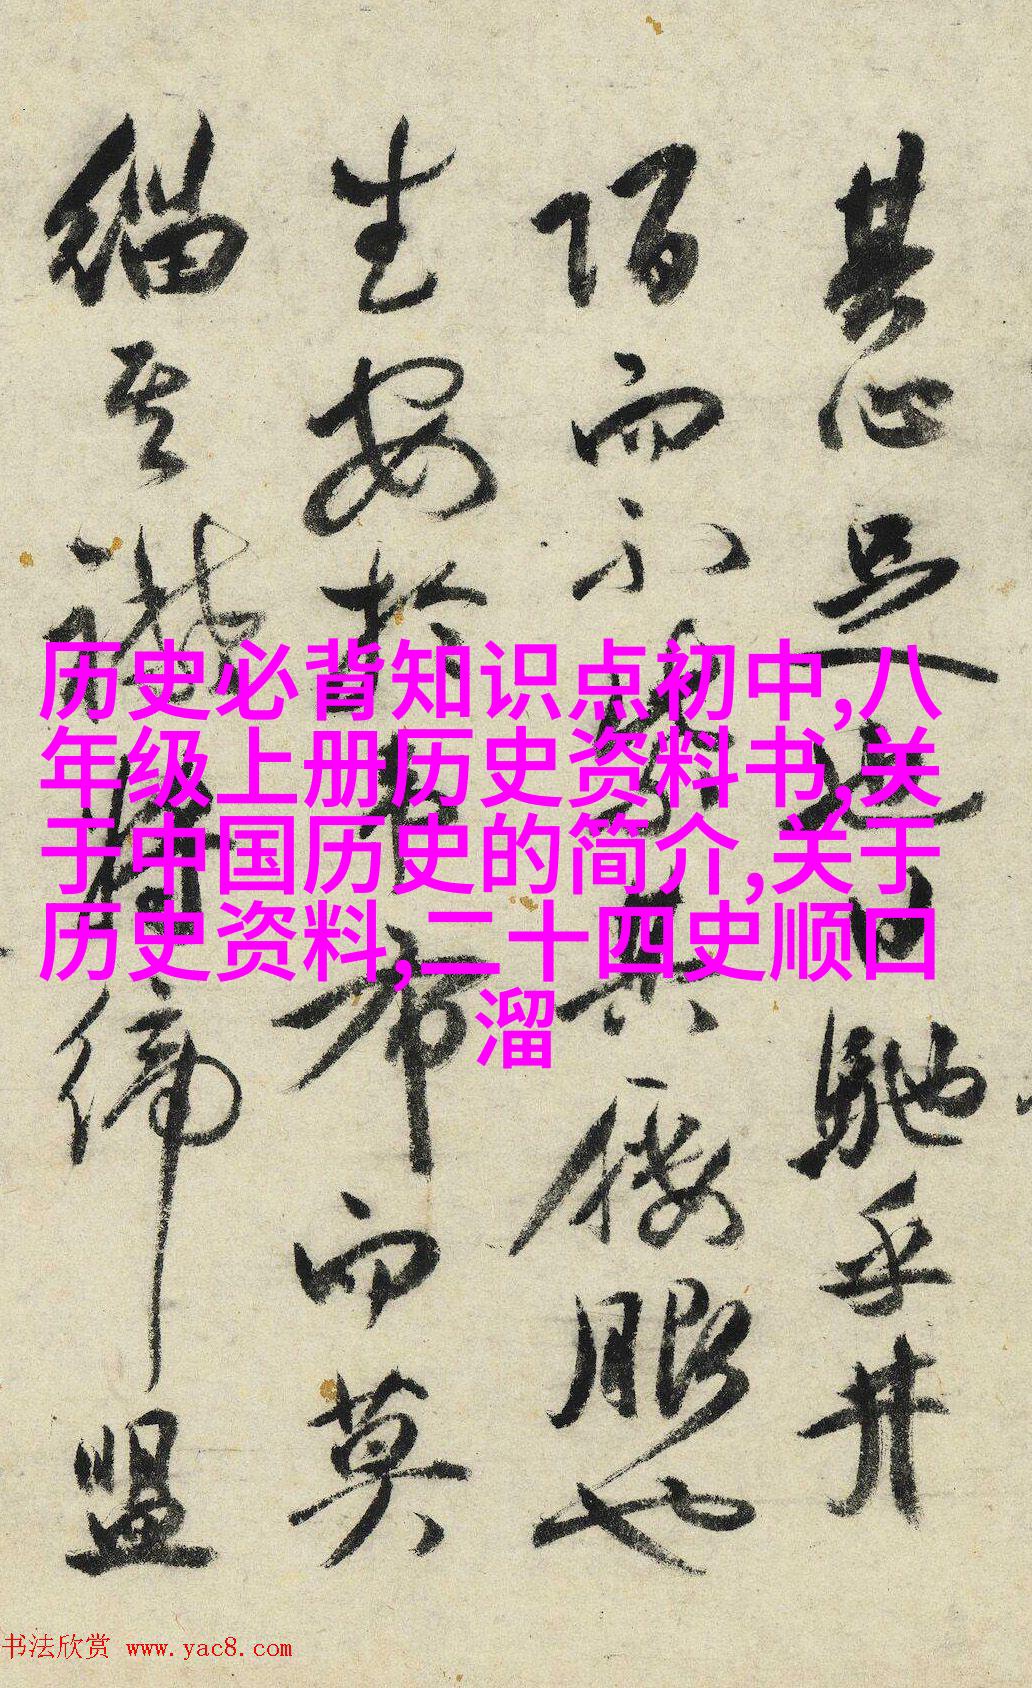 其心足日馳乎井
陌而不其也
生安於市而莫
其締盟
历史必背知识点初中,八
年级上册历史资料书,关
于中国历史的简介,关于
历史资料,二十四史顺口
溜
书法欣赏 www.yac8.com